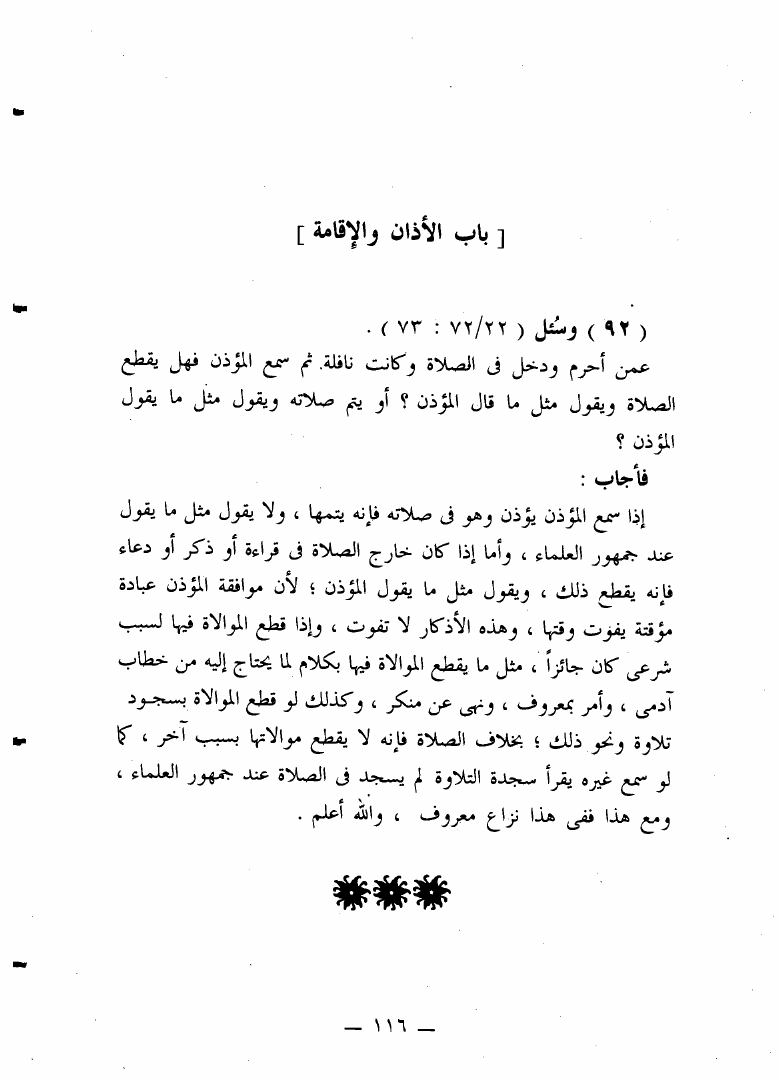 [ باب الأذان والإقامة ]
( ٩٢ ) وسُئل ( ٧٢/٢٢ : ٧٣ ) .
عمن أحرم ودخل فى الصلاة وكانت نافلة. ثم سمع المؤذن فهل يقطع
الصلاة ويقول مثل ما قال المؤذن ؟ أو يتم صلاته ويقول مثل ما يقول
المؤذن ؟
فأجاب :
إذا سمع المؤذن يؤذن وهو فى صلاته فإنه يتمها ، ولا يقول مثل ما يقول
عند جمهور العلماء ، وأما إذا كان خارج الصلاة فى قراءة أو ذكر أو دعاء
فإنه يقطع ذلك ، ويقول مثل ما يقول المؤذن ؛ لأن موافقة المؤذن عبادة
مؤقتة يفوت وقتها ، وهذه الأذكار لا تفوت ، وإذا قطع الموالاة فيها لسبب
شرعى كان جائزاً ، مثل ما يقطع الموالاة فيها بكلام لما يحتاج إليه من خطاب
آدمى ، وأمر بمعروف ، ونهى عن منكر ، وكذلك لو قطع الموالاة بسجود
تلاوة ونحو ذلك ؛ بخلاف الصلاة فإنه لا يقطع موالاتها بسبب آخر ، كما
لو سمع غيره يقرأ سجدة التلاوة لم يسجد فى الصلاة عند جمهور العلماء ،
ومع هذا ففى هذا نزاع معروف ، والله أعلم .
— ١١٦ —